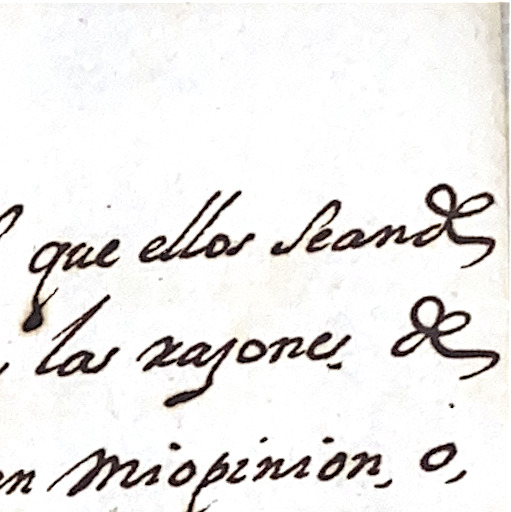 que ellos sean de
las razones de
en mi opinion, o,